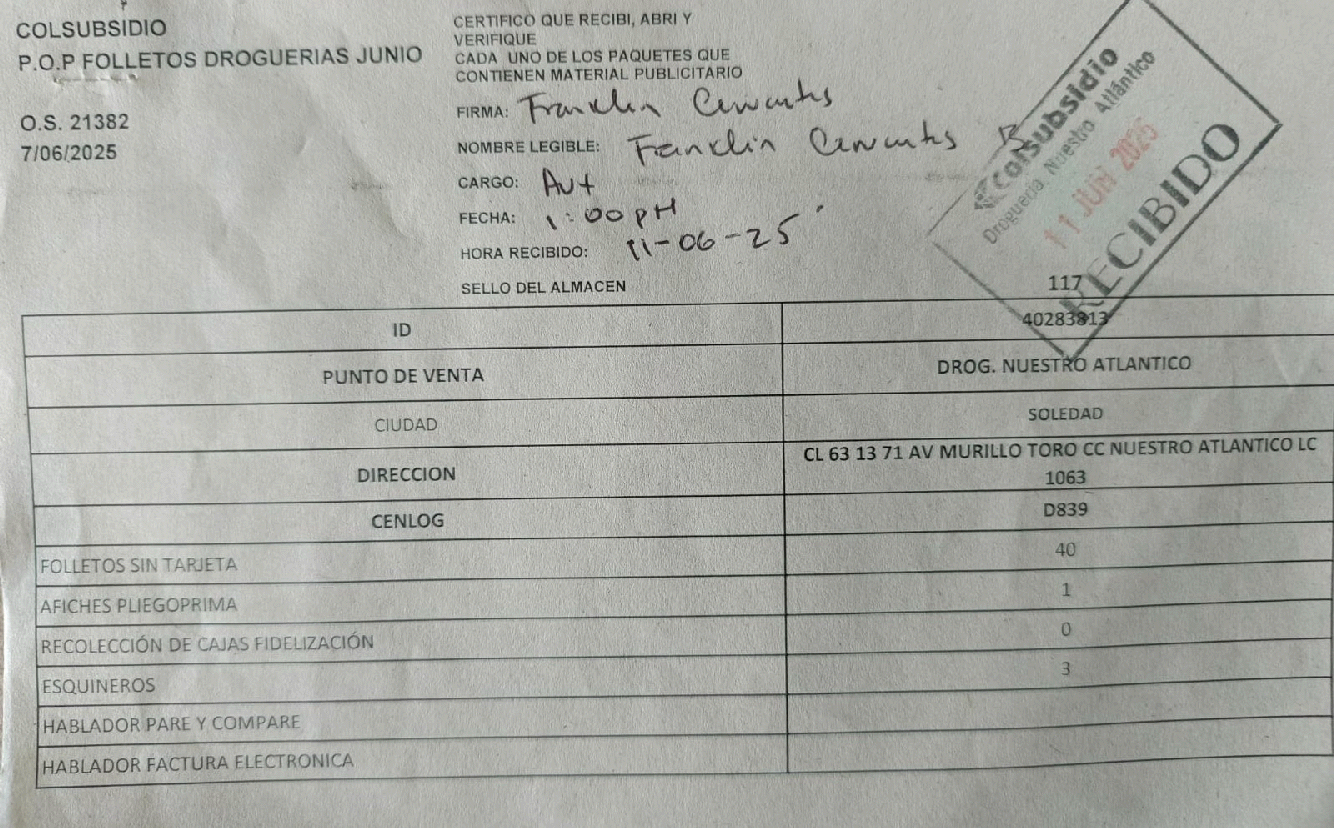 COLSUBSIDIO
P.O.P FOLLETOS DROGUERIAS JUNIO
O.S. 21382
7/06/2025
CERTIFICO QUE RECIBI, ABRI Y
VERIFIQUE
CADA UNO DE LOS PAQUETES QUE
CONTIENEN MATERIAL PUBLICITARIO
FIRMA: Franklin Cervantes
NOMBRE LEGIBLE: Franklin Cervantes B
CARGO: Aux
FECHA: 1:00 pM
HORA RECIBIDO: 11-06-25
SELLO DEL ALMACEN
Colsubsidio
Droguería Nuestro Atlántico
11 JUN 2025
RECIBIDO
117
ID 40283813
PUNTO DE VENTA DROG. NUESTRO ATLANTICO
CIUDAD SOLEDAD
DIRECCION CL 63 13 71 AV MURILLO TORO CC NUESTRO ATLANTICO LC
1063
CENLOG D839
FOLLETOS SIN TARJETA 40
AFICHES PLIEGOPRIMA 1
RECOLECCIÓN DE CAJAS FIDELIZACIÓN 0
ESQUINEROS 3
HABLADOR PARE Y COMPARE
HABLADOR FACTURA ELECTRONICA